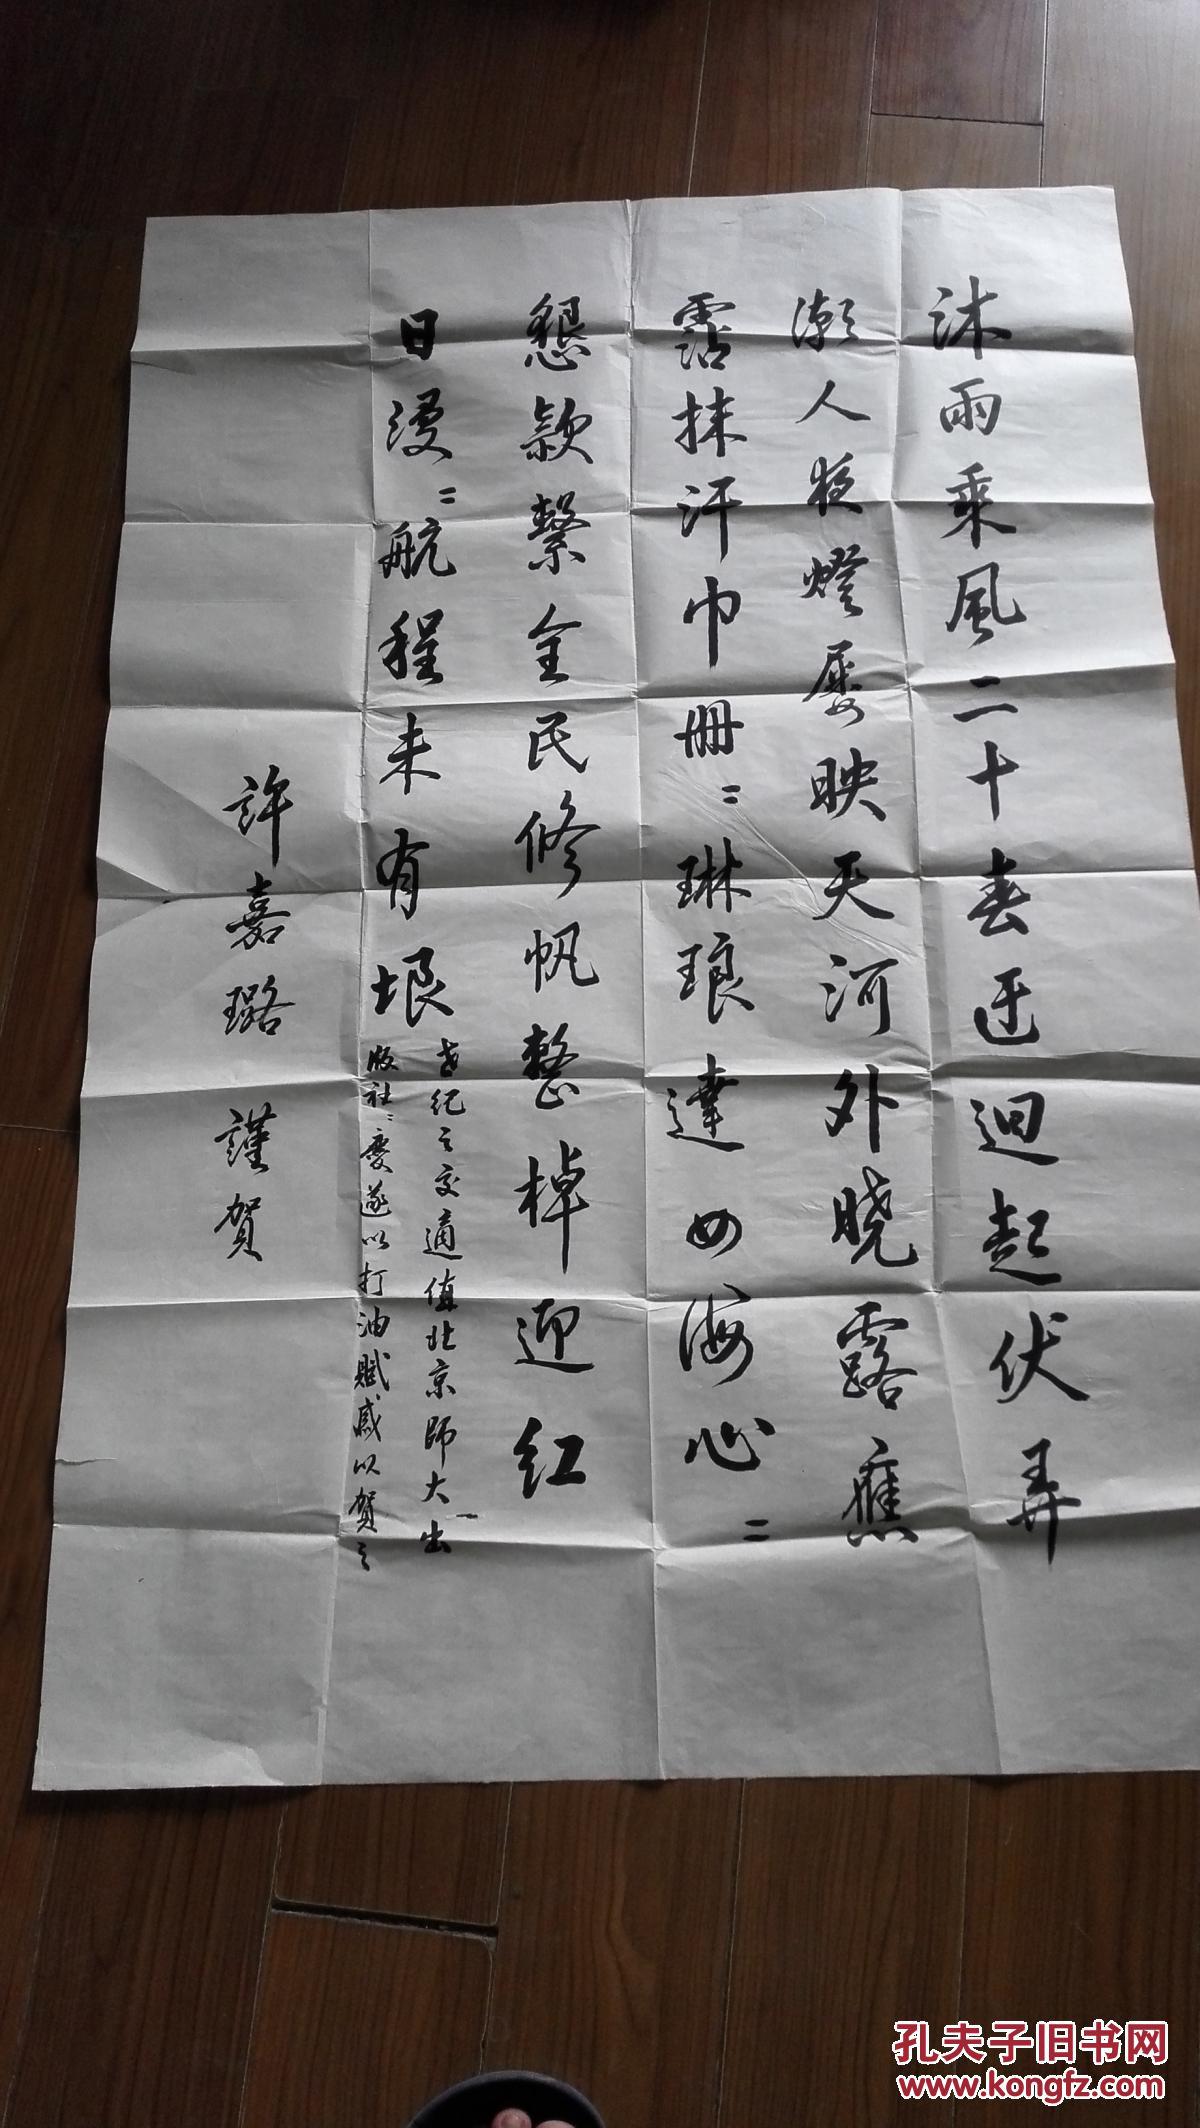 沐雨乘風二十春迂迴起伏弄
潮人夜燈屢映天河外曉露應
霑抹汗巾冊〻琳琅達四海心〻
懇款繫全民修帆整棹迎紅
日漫〻航程未有垠
世纪之交適值北京師大出
版社〻慶遂以打油賦感以賀之
許嘉璐 謹賀
孔夫子旧书网
www.kongfz.com